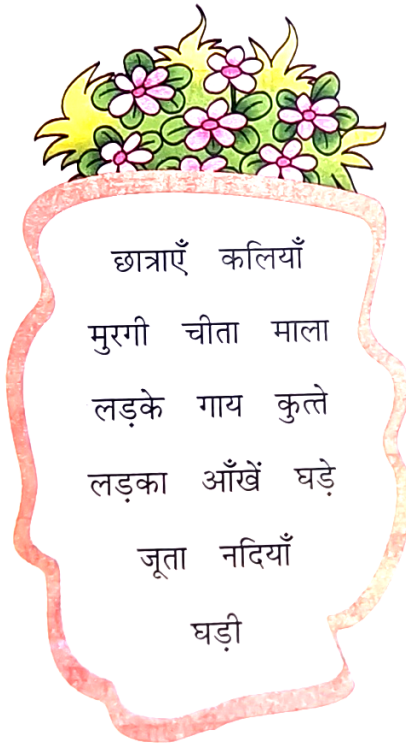 छात्राएँ कलियाँ
मुरगी चीता माला
लड़के गाय कुत्ते
लड़का आँखें घड़े
जूता नदियाँ
घड़ी